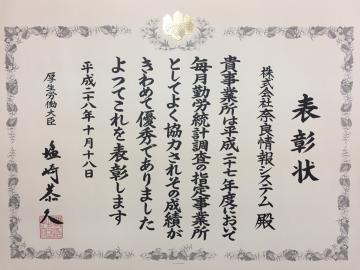 表彰状
株式会社奈良情報システム 殿
貴事業所は平成二十七年度において
毎月勤労統計調査の指定事業所
としてよく協力されその成績が
きわめて優秀でありました
よってこれを表彰します
平成二十八年十月十八日
厚生労働大臣 塩崎恭久